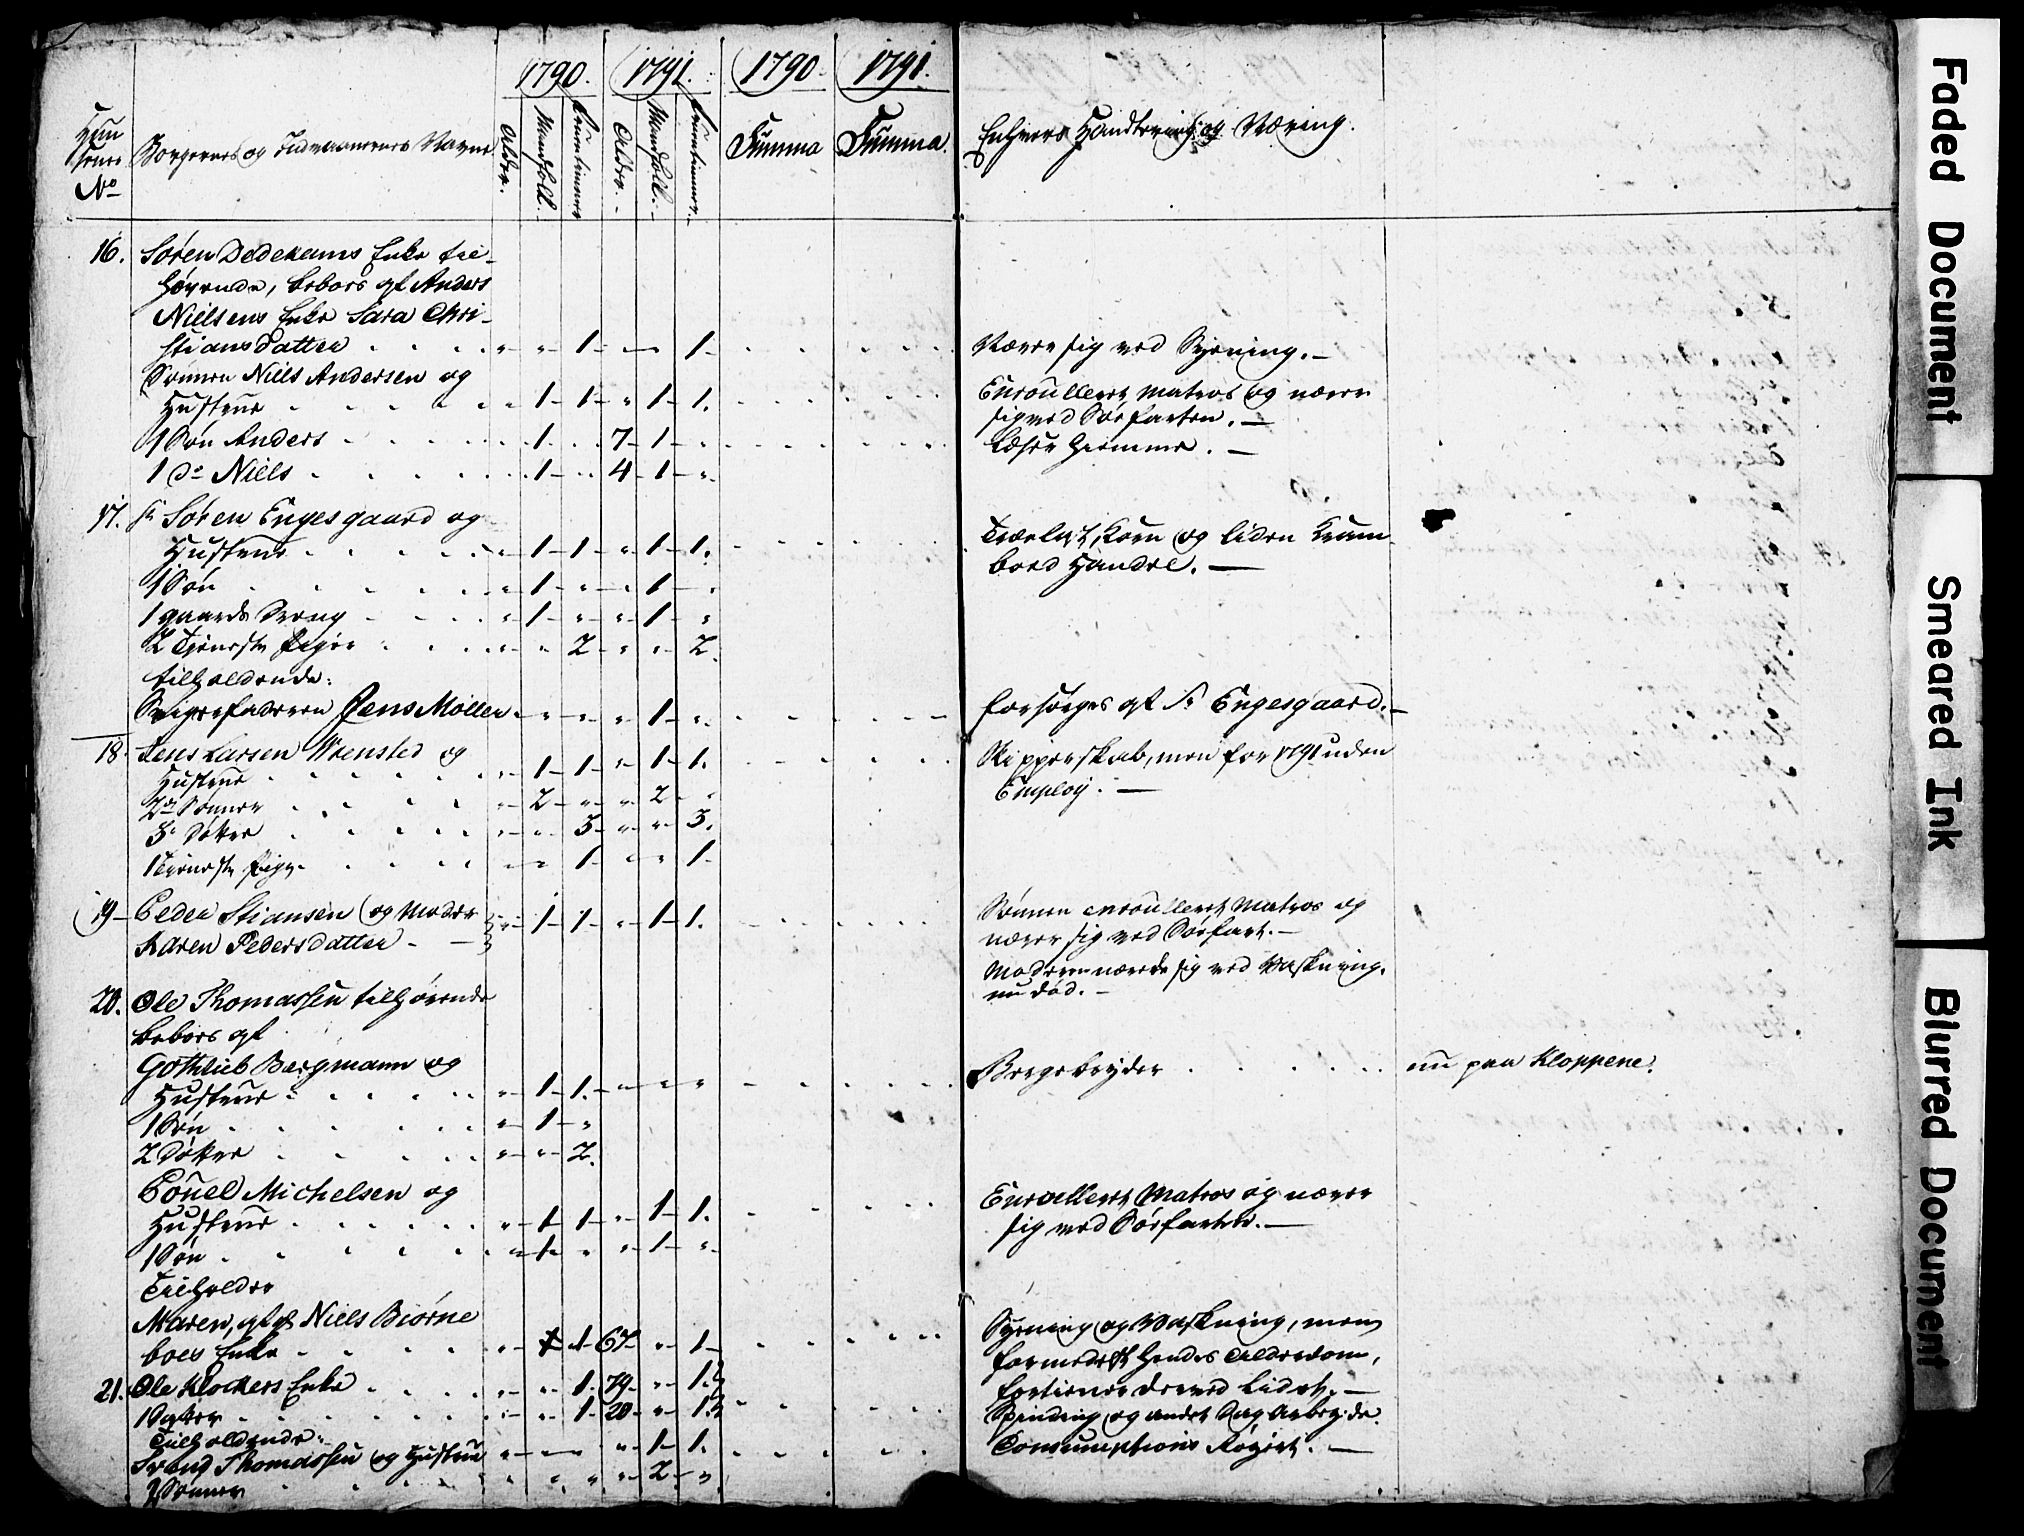 1790. 1791. 1790. 1791.
Huusenes No Borgernes og Indvaanernes Navne Alder. Mandkøll. Fruentimmer Alder. Mandkøll. Fruentimmer. Summa Summa. Enhvers Handtering og Næring.
16. Søren Dedekams Enke til-
hørende, beboes af Anders
Nielsens Enke Sara Chri-
stiansdatter 1 1 Nærer sig ved Syening.
Sønnen Niels Andersen og
Hustrue 1 1 1 1. Enroulleret Matros og nærer
sig ved Søefarten.
1 Søn Anders 1 7 1 Læser hiemme.
1 do Niels 1 4 1
17. Sr Søren Engesgaard og
Hustrue 1 1 1 1. Trælast, Korn og liden Kram-
boed Handel.
1 Søn 1 1
1 gaards Dreng 1 1
2 Tjeneste Piger 2 2.
tilholdende:
Svigerfaderen Jens Møller 1 forsørges af Sr Engesgaard.
18. Jens Larsen Wrensted og
Hustrue 1 1 1 1. Skipperskab, men for 1791 uden
Employ.
2de Sønner 2 2
3e Døttre 3 3.
1 Tjeneste Pige 1 1
19 Peder Stiansen og Moder
Karen Pedersdatter 1 1 1 1. Sønnen enroulleret Matros og
nærer sig ved Søefart.
Moderen nærede sig ved Vaskning.
nu død.
20. Ole Thomassen tilhørende
beboes af
Gottlieb Bergmann og
Hustrue 1 1. Borgebryder nu paa Kloppene.
1 Søn 1
2 Døttre 2.
Pouel Michelsen og
Hustrue 1 1 1 1. Enroulleret Matros og nærer
sig ved Søefarten.
1 Søn 1 1
Tilholder
Maren, afg. Niels Biørne
boes Enke 1 67 1 Syening og Vaskning, men
formedelst hendes Alderdom,
fortiener derved lidet.
21. Ole Klockers Enke 1. 79 1.
1 Datter 1 20 1. Spinding og andet Dag Arbeyde.
Tilholdende:
Trond Thomassen og Hustrue 1 1. Consumptions Røgert.
2 Sønner 2
Faded Document
Smeared Ink
Blurred Document